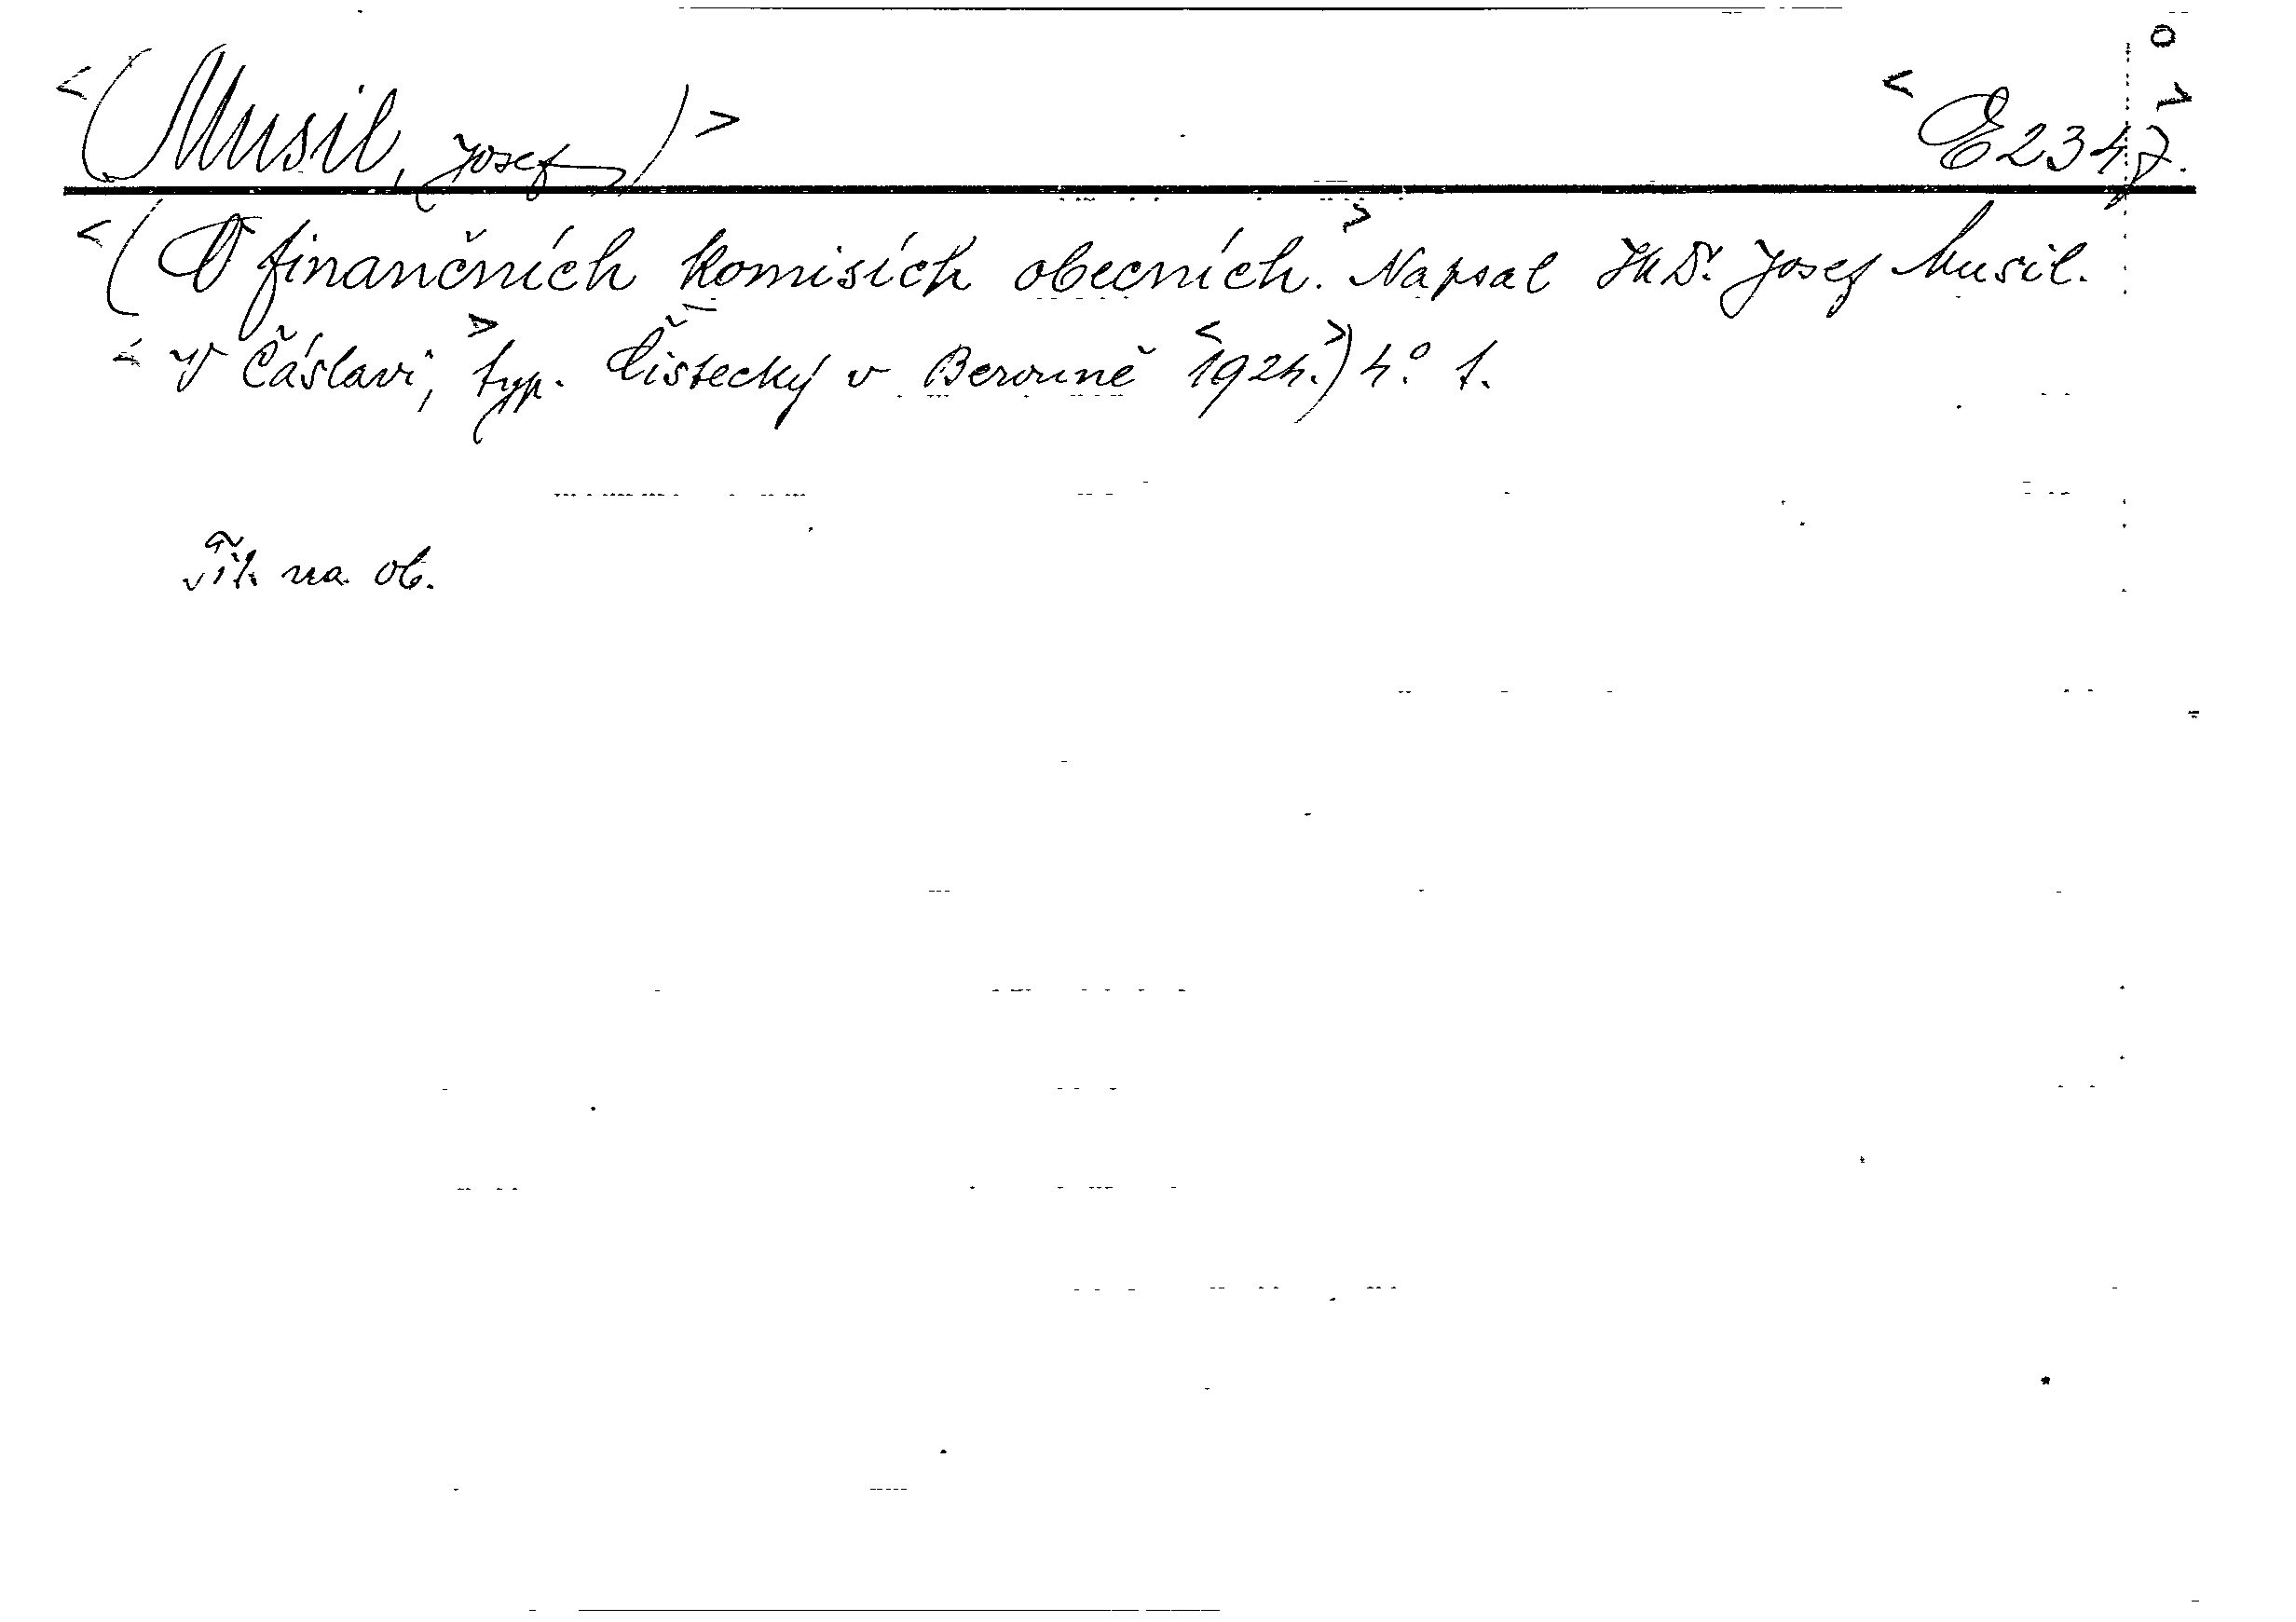 <(Musil, Josef)> <E 2347.>
<(O finančních komisích obecních.> Napsal JUDr. Josef Musil.
< V Čáslavi,> typ. Čistecký v Berouně <1924.>) 4° 1.
Tit. na ob.